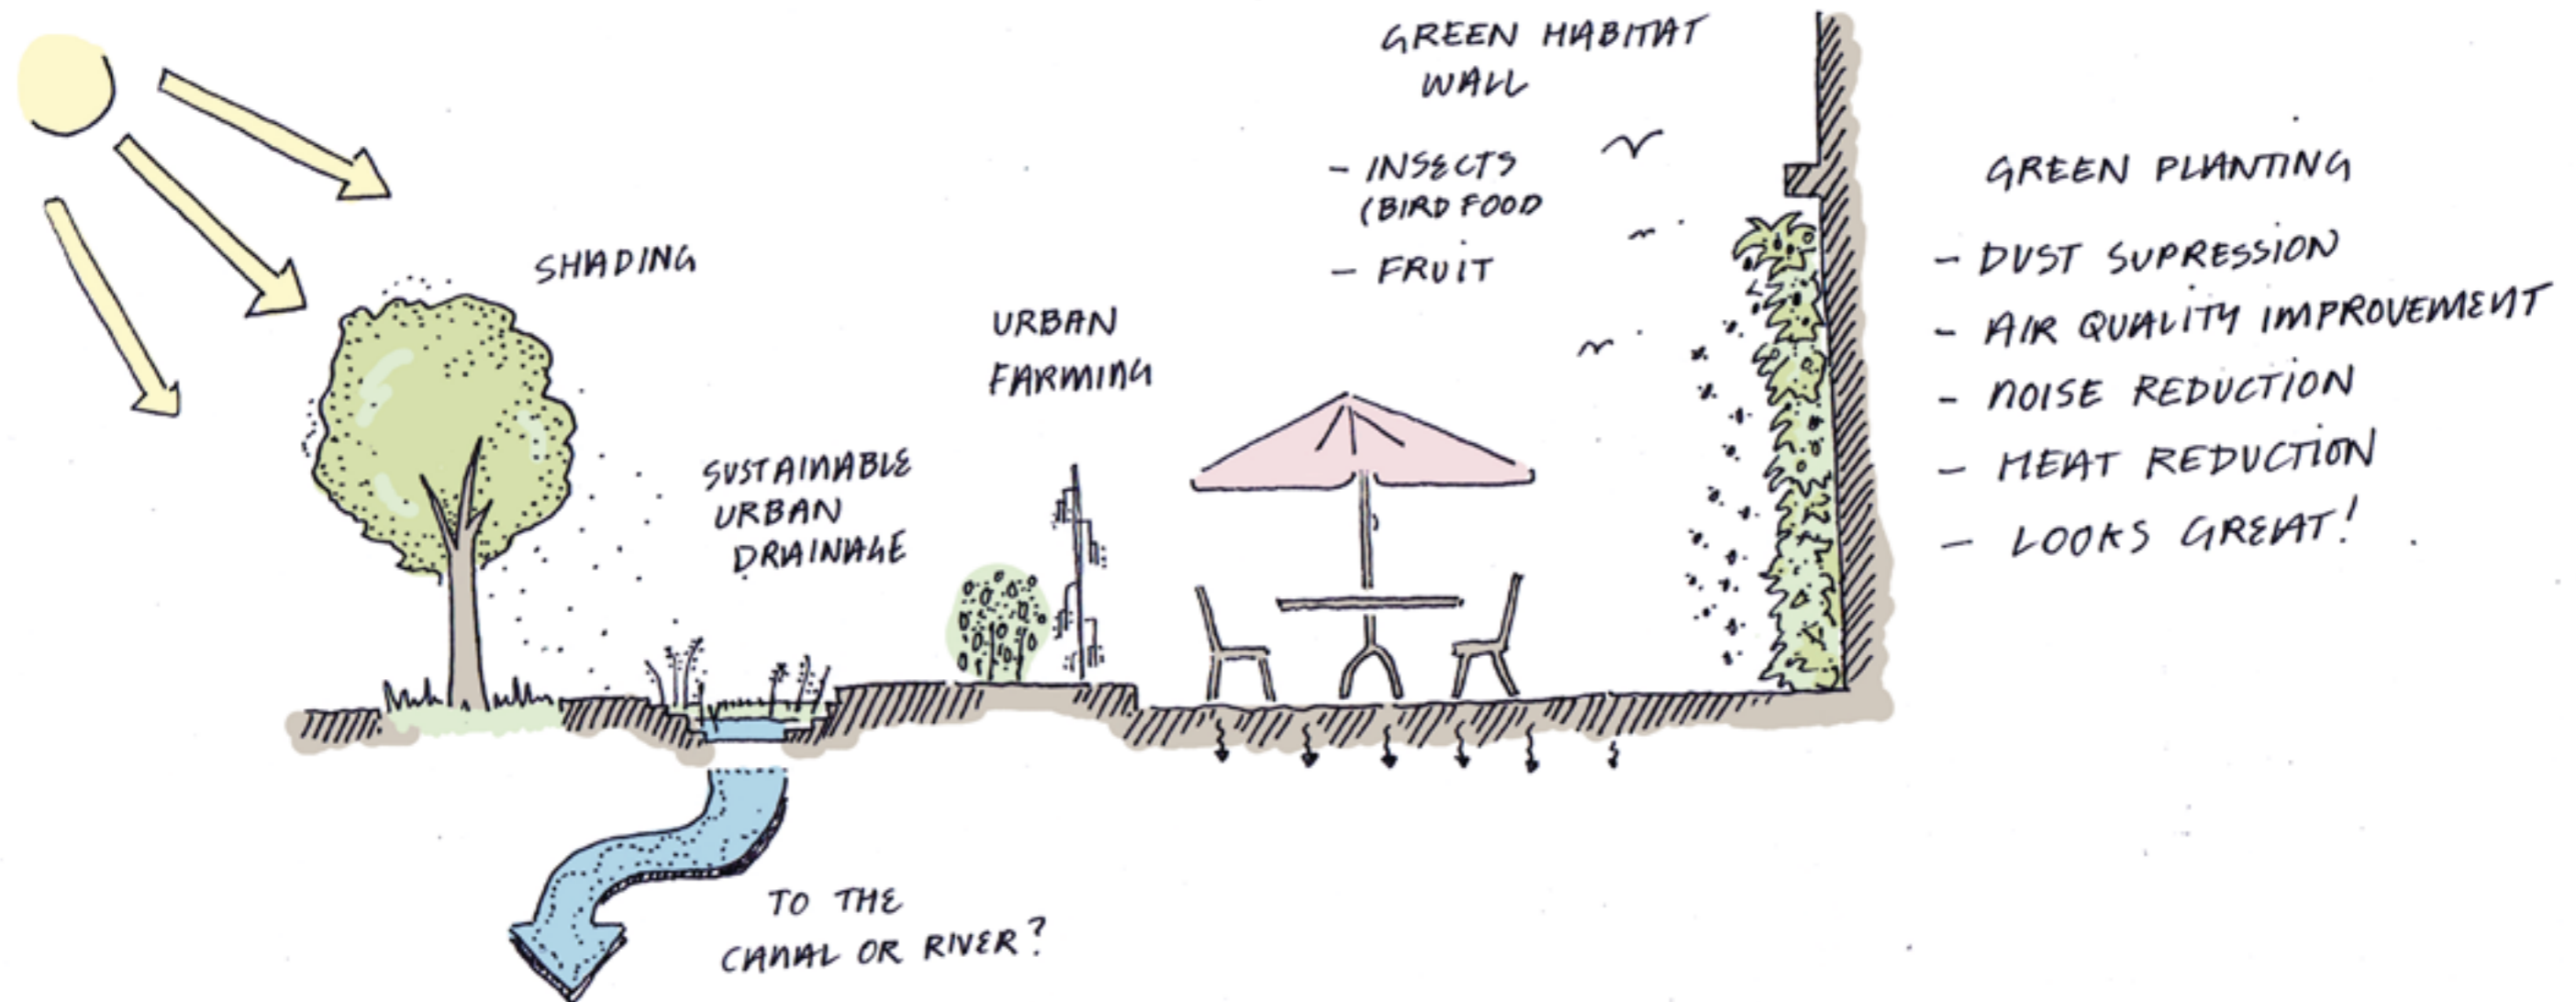 SHADING
SUSTAINABLE
URBAN
DRAINAGE
TO THE
CANAL OR RIVER?
URBAN
FARMING
GREEN HABITAT
WALL
- INSECTS
(BIRD FOOD
- FRUIT
GREEN PLANTING
- DUST SUPRESSION
- AIR QUALITY IMPROVEMENT
- NOISE REDUCTION
- HEAT REDUCTION
- LOOKS GREAT!